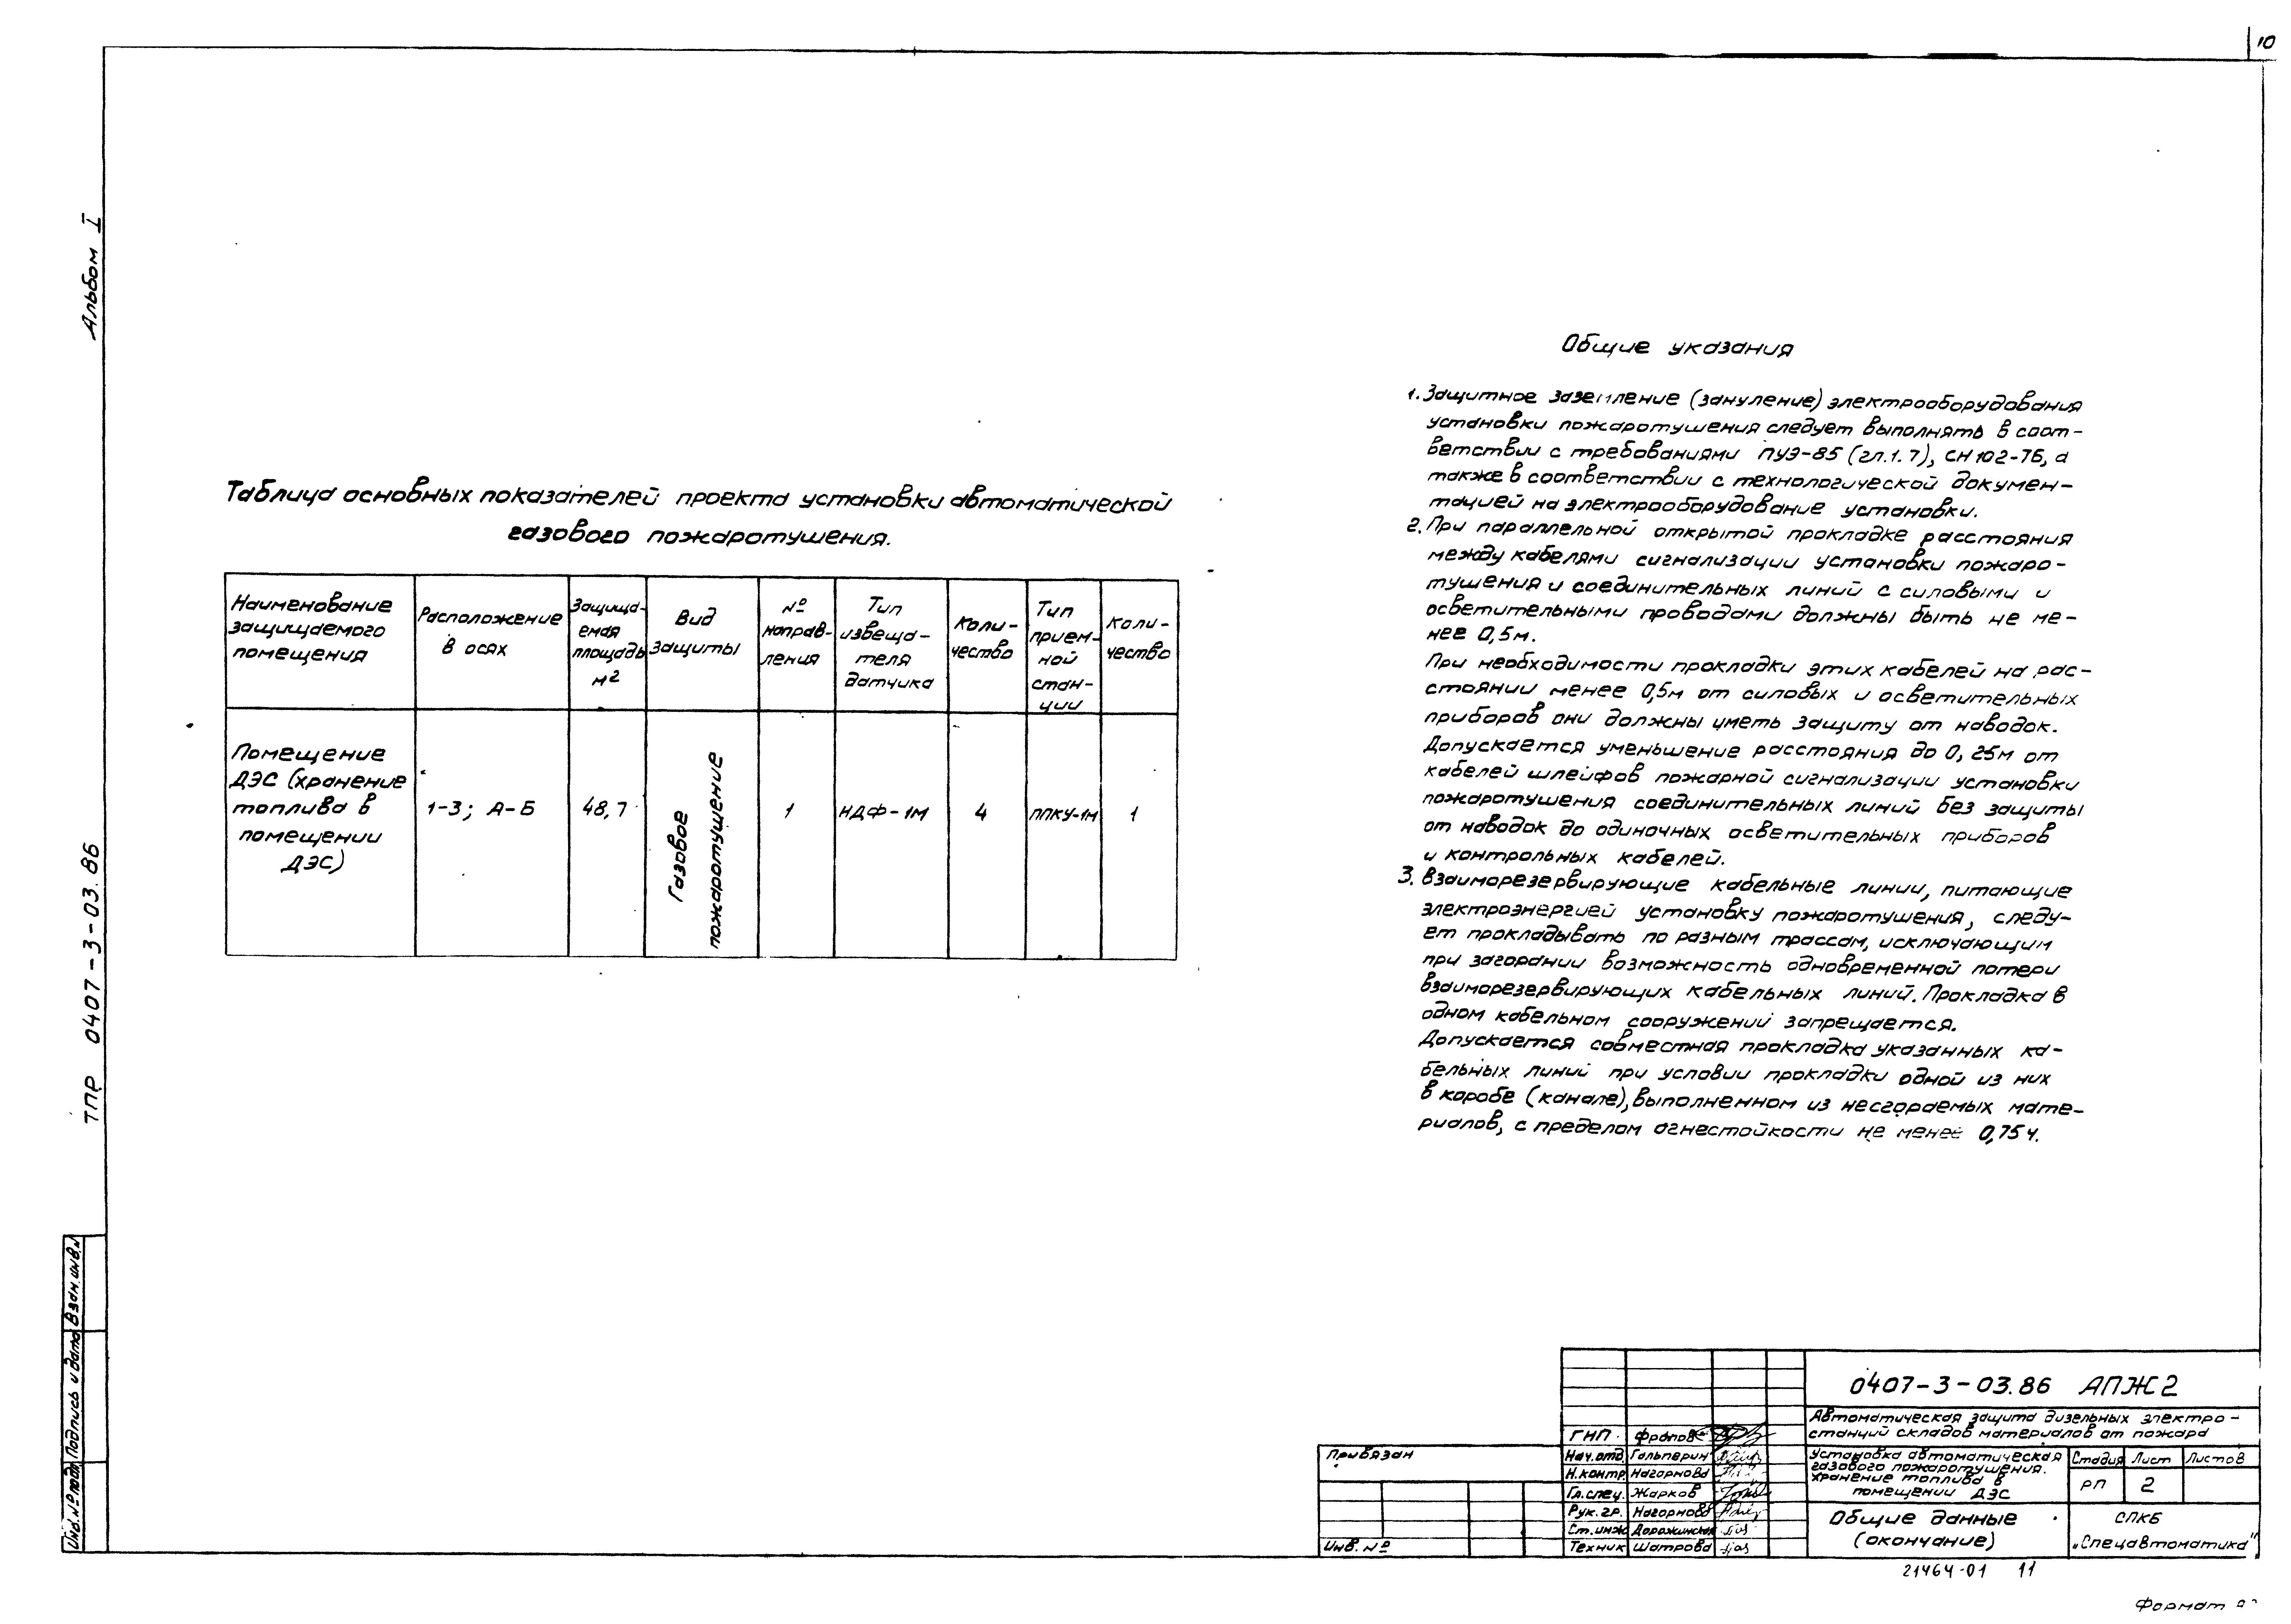 10
Альбом I
ТПР 0407-3-03.86
Таблица основных показателей проекта установки автоматической
газового пожаротушения.
Наименование защищаемого помещения
Расположение в осях
Защища-емая площадь м²
Вид защиты
№ направ-ления
Тип извеща-теля датчика
Коли-чество
Тип прием-ной стан-ции
Коли-чество
Помещение ДЭС (хранение топлива в помещении ДЭС)
1-3; А-Б
48,7
Газовое пожаротушение
1
НДФ-1М
4
ППКУ-1М
1
Общие указания
1. Защитное заземление (зануление) электрооборудования
установки пожаротушения следует выполнять в соот-
ветствии с требованиями ПУЭ-85 (гл.1.7), СН102-76, а
также в соответствии с технологической докумен-
тацией на электрооборудование установки.
2. При параллельной открытой прокладке расстояния
между кабелями сигнализации установки пожаро-
тушения и соединительных линий с силовыми и
осветительными проводами должны быть не ме-
нее 0,5м.
При необходимости прокладки этих кабелей на рас-
стоянии менее 0,5м от силовых и осветительных
приборов они должны иметь защиту от наводок.
Допускается уменьшение расстояния до 0,25м от
кабелей шлейфов пожарной сигнализации установки
пожаротушения соединительных линий без защиты
от наводок до одиночных осветительных приборов
и контрольных кабелей.
3. Взаиморезервирующие кабельные линии, питающие
электроэнергией установку пожаротушения, следу-
ет прокладывать по разным трассам, исключающим
при загорании возможность одновременной потери
взаиморезервирующих кабельных линий. Прокладка в
одном кабельном сооружений запрещается.
Допускается совместная прокладка указанных ка-
бельных линий при условии прокладки одной из них
в коробе (канале), выполненном из несгораемых мате-
риалов, с пределом огнестойкости не менее 0,75ч.
Взам. инв. №
Подпись и дата
Инв. № подл
Привязан
Инв. №
ГНП Фролов
Нач.отд Гальперин
Н.контр Нагорнова
Гл.спец. Жарков
Рук. гр. Нагорнова
Ст.инж Дорожинская
Техник Шатрова
0407-3-03.86 АПЖ2
Автоматическая защита дизельных электро-
станций складов материалов от пожара
Установка автоматическая
газового пожаротушения.
хранение топлива в
помещении ДЭС
Стадия Лист Листов
РП 2
Общие данные
(окончание)
СПКБ
„Спецавтоматика"
21464-01 11
Формат